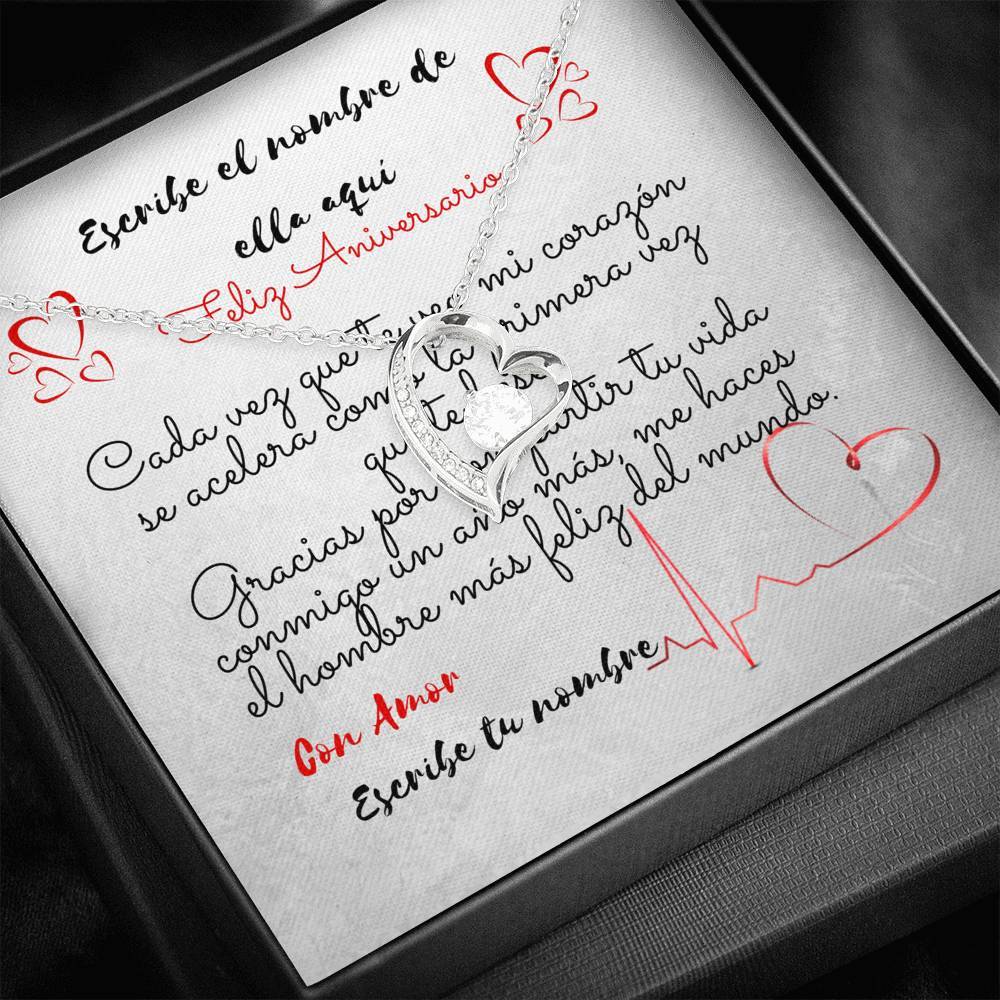 Escribe el nombre de
ella aquí
Feliz Aniversario
Cada vez que te veo mi corazón
se acelera como la primera vez
que te
Gracias por compartir tu vida
conmigo un año más, me haces
el hombre más feliz del mundo.
Con Amor
Escribe tu nombre